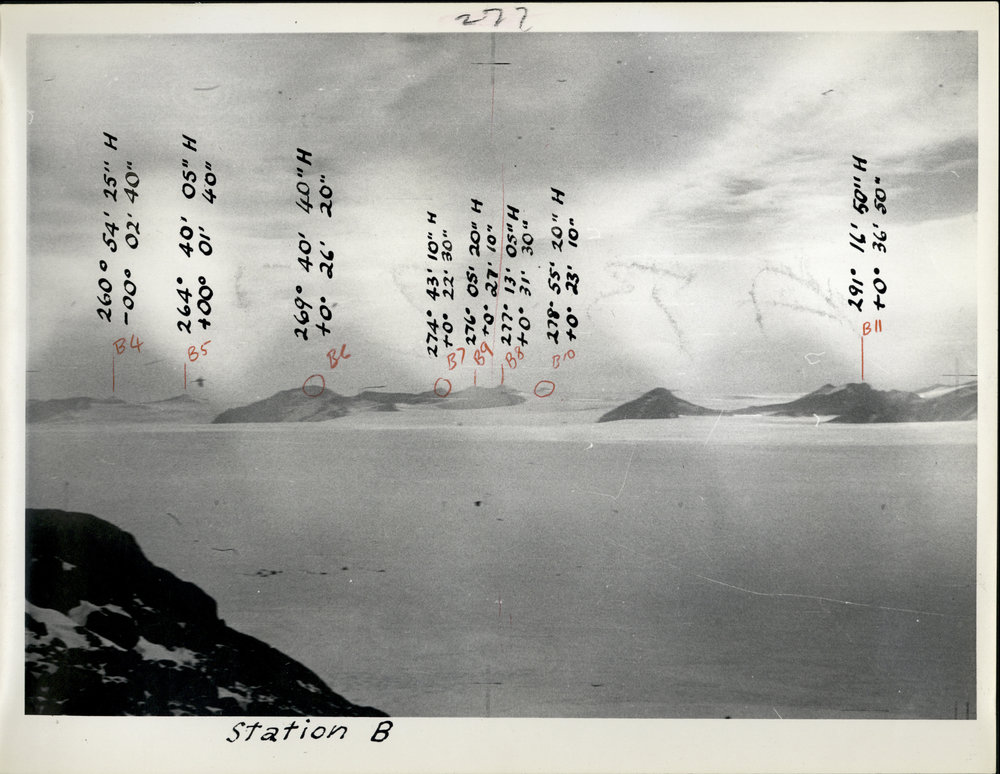 277
260° 54' 25" H
-00° 02' 40"
B4
264° 40' 05" H
+00° 01' 40"
B5
269° 40' 40" H
+0° 26' 20"
B6
274° 43' 10" H
+0° 22' 30"
B7
276° 05' 20" H
+0° 27' 10"
B9
277° 13' 05" H
+0° 31' 30"
B8
278° 55' 20" H
+0° 23' 10"
B10
291° 16' 50" H
+0° 36' 50"
B11
Station B